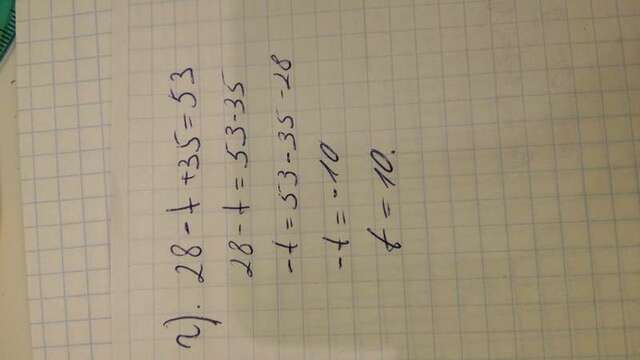 г). 28 - t + 35 = 53
28 - t = 53 - 35
-t = 53 - 35 - 28
-t = -10
t = 10.